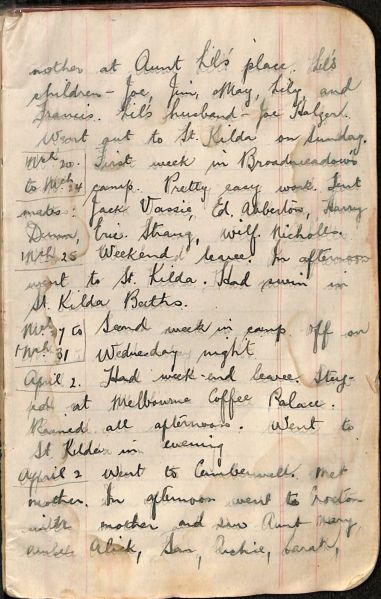 mother at Aunt Lil's place. Lil's
children - Joe, Jim, May, Lily, and
Francis. Lil's husband - Joe
Went out to St. Kilda on Sunday.
Mch 20. First week in Broadmeadows
to Mch 24 camp. Pretty easy work. Tent
mates: Jack Vassie, Ed. Harry
Eric Strang, Wilf. Nicholls
Mch 25 Weekend leave. In afternoon
went to St. Kilda. Had swim in
St. Kilda Baths.
Mch 27 to Second week in camp. Off on
Mch 31 Wednesday night
April 2. Had week-end leave. Stay-
ed at Melbourne Coffee Palace.
Rained all afternoon. Went to
St. Kilda in evening
April 2 Went to Camberwell. Met
mother. In afternoon went to Croxton
with mother and saw Aunt Mary,
Alick, Archie, Sarah,